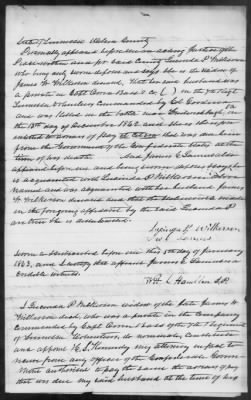 State of Tennessee Wilson County
Personally appeared before me an acting Justice of the
Peace within and for said County Lucinda P Wilkerson
who being duly sworn deposes and says she is the widow of
James H Wilkerson deceased, that her said husband was
a private in Capt Bass's Co ( ) in the 7th Regt
Tennessee Volunteers Commanded by Col Goodner
and was killed in the battle near Fredericksburgh, on
the 13th day of December 1862 and she is
entitled to arrears of pay that was due him
from the Government of the Confederate States at the
time of his death. And James
appeared before me and being sworn deposes & says he
is acquainted with Lucinda P Wilkerson above
named and was acquainted with her husband James
H Wilkerson deceased and that the statements made
in the foregoing affidavit by the said Lucinda P
are true
Sworn to & subscribed before me this day of January
1863, and I certify that affiant James is a
credible witness.
I Lucinda P Wilkerson widow of the late James H
Wilkerson decd, who was a private in the Company
Commanded by Capt Bass of the 7th Regiment
of Tennessee Volunteers, do nominate, constitute
and appoint my attorney in fact to
from any officer of the Confederate Govern-
ment authorized to pay the same the arrears of pay
that was due my said husband at the time of his